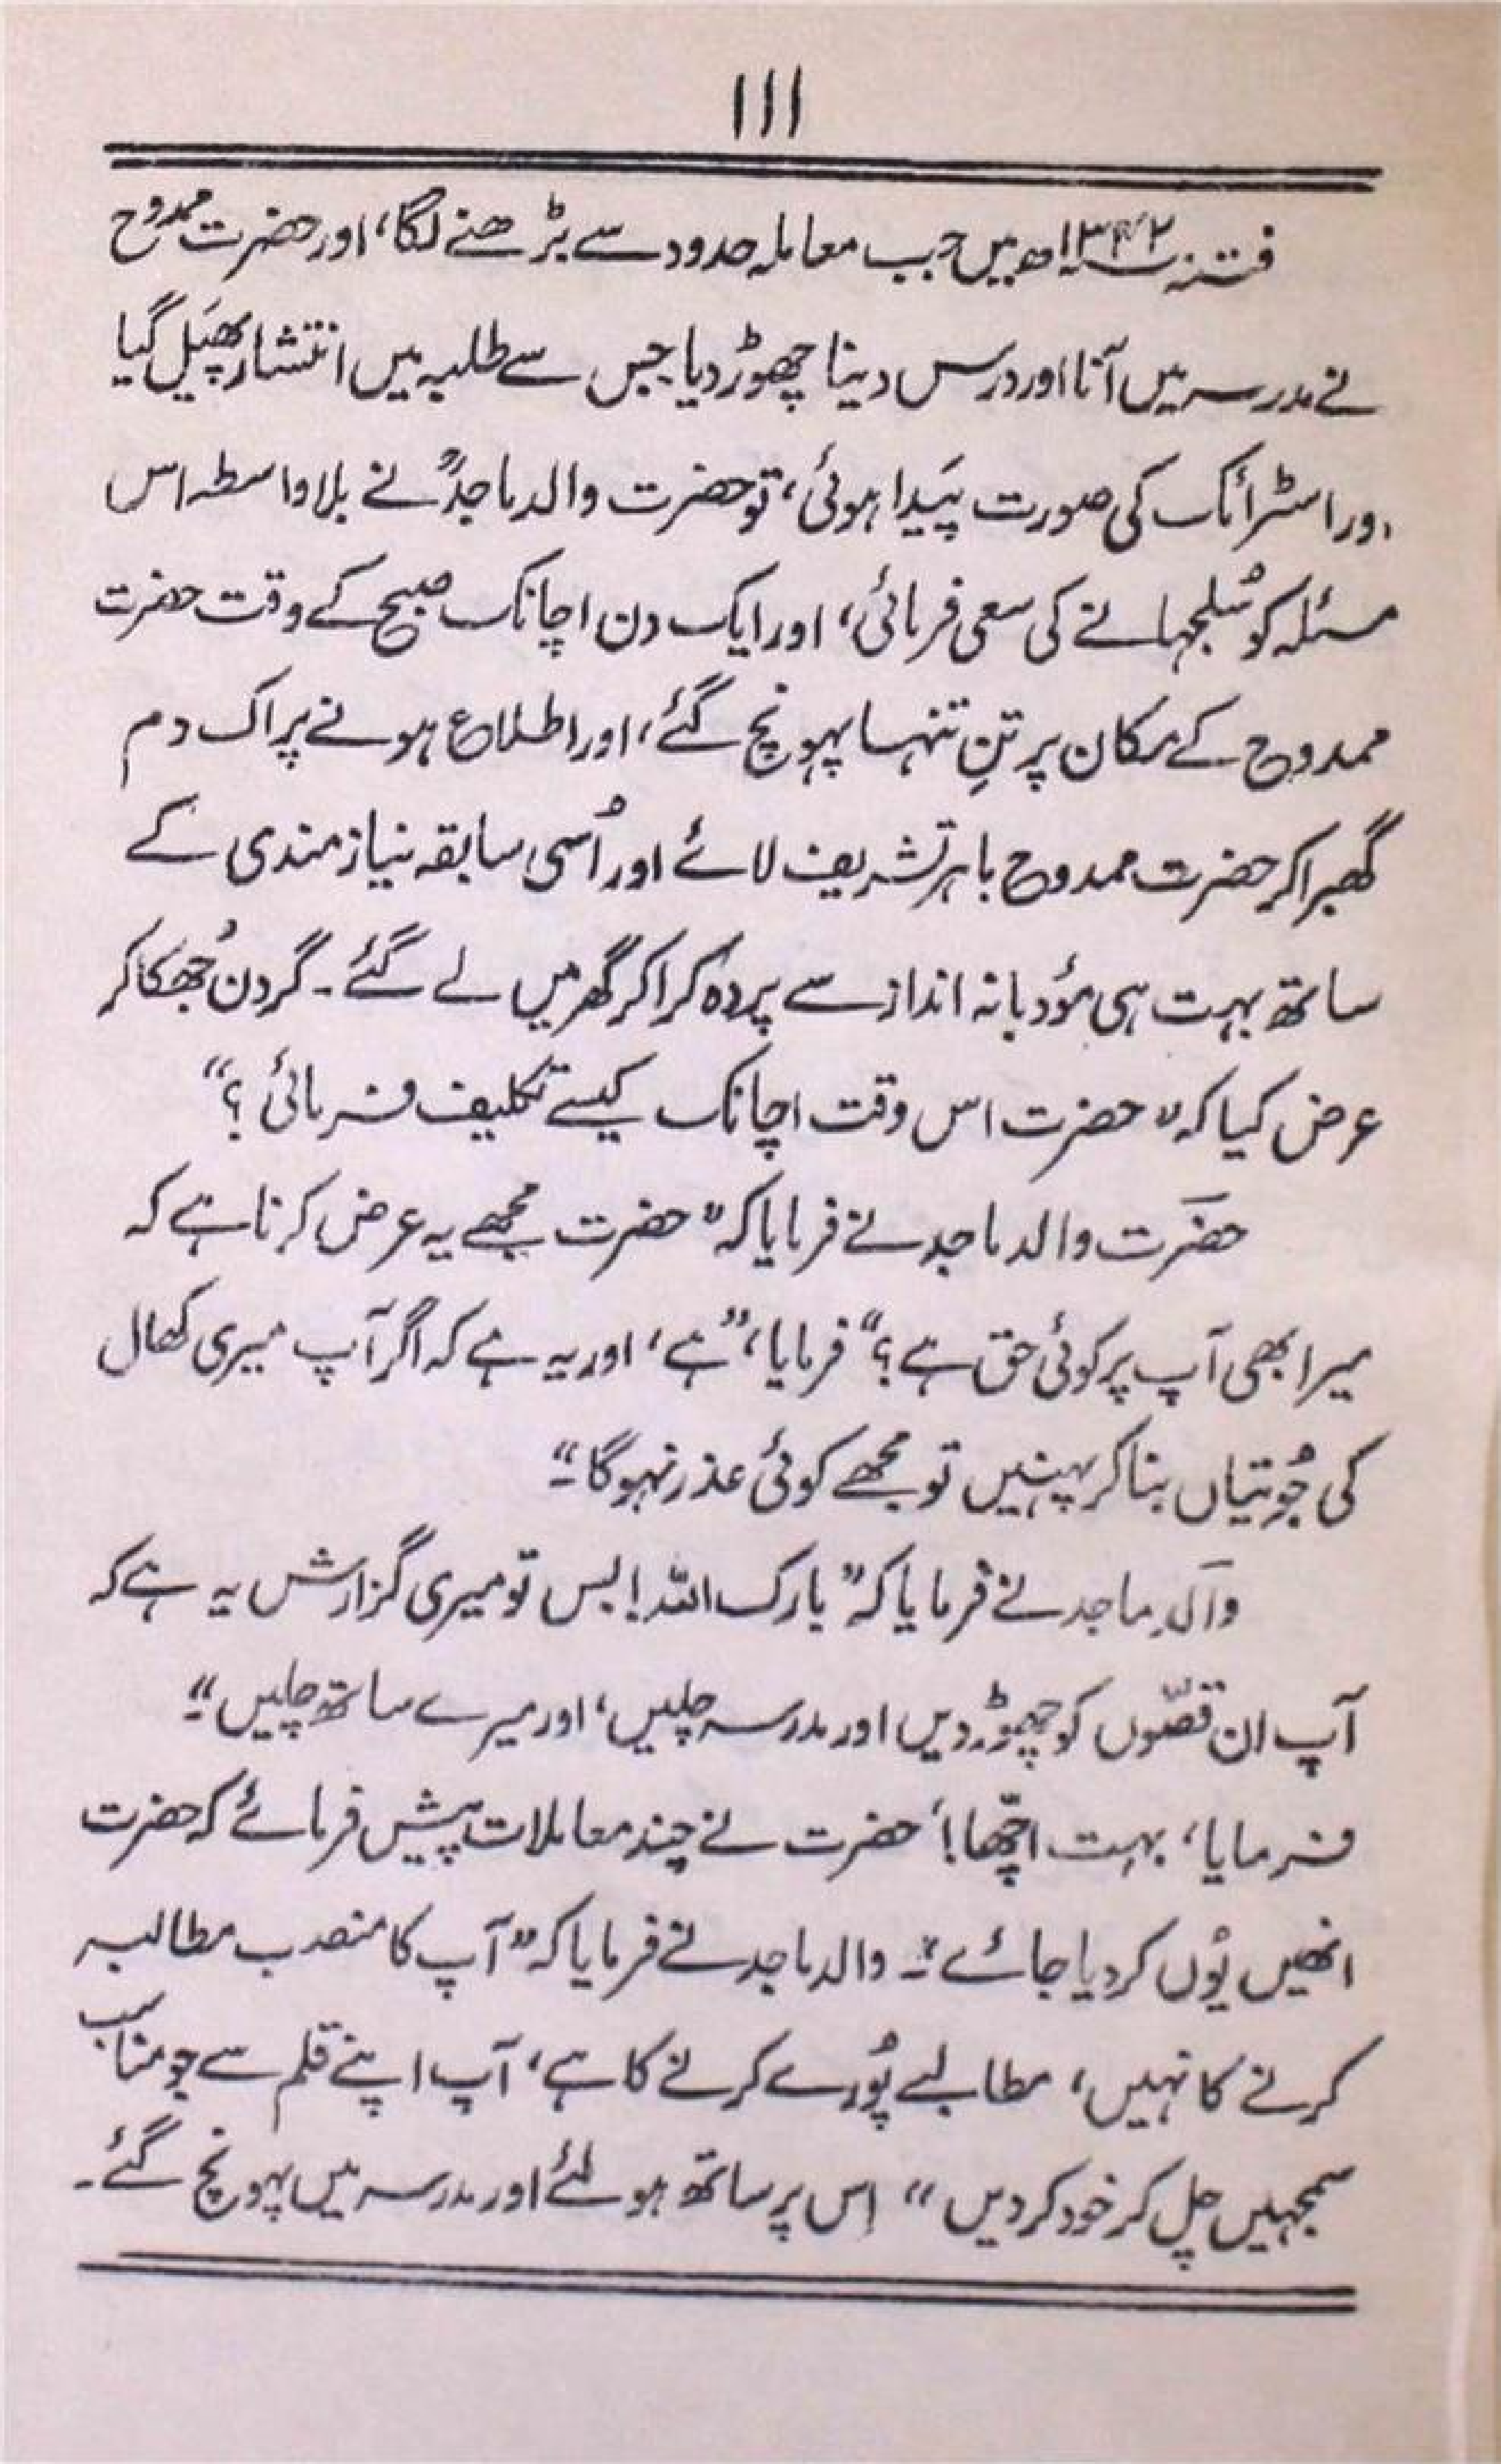 ۱۱۱
فتنہ ۱۳۴۲ھ میں جب معاملہ حدود سے بڑھنے لگا، اور حضرت ممدوح
نے مدرسہ میں آنا اور درس دینا چھوڑ دیا جس سے طلبہ میں انتشار پھَیل گیا
اور اسٹرائک کی صورت پَیدا ہوئی، تو حضرت والد ماجدؒ نے بلا واسطہ اس
مسئلہ کو سُلجھانے کی سعی فرمائی، اور ایک دن اچانک صبح کے وقت حضرت
ممدوح کے مکان پر تنِ تنہا پہونچ گئے، اور اطلاع ہونے پر اک دم
گھبرا کر حضرت ممدوح باہر تشریف لائے اور اُسی سابقہ نیازمندی کے
ساتھ بہت ہی مؤدبانہ انداز سے پردہ کرا کر گھر میں لے گئے۔ گردن جُھکا کر
عرض کیا کہ ”حضرت اس وقت اچانک کیسے تکلیف فرمائی؟“
حضرت والد ماجد نے فرمایا کہ ”حضرت مجھے یہ عرض کرنا ہے کہ
میرا بھی آپ پر کوئی حق ہے؟“ فرمایا، ”ہے، اور یہ ہے کہ اگر آپ میری کھال
کی جُوتیاں بنا کر پہنیں تو مجھے کوئی عذر نہوگا“۔
والد ماجد نے فرمایا کہ ”بارک اللہ! بس تو میری گزارش یہ ہے کہ
آپ ان قصّوں کو چھوڑ دیں اور مدرسہ چلیں، اور میرے ساتھ چلیں“۔
فرمایا، بہت اچّھا! حضرت نے چند معاملات پیش فرمائے کہ حضرت
انھیں یُوں کر دیا جائے“۔ والد ماجد نے فرمایا کہ ”آپ کا منصب مطالبہ
کرنے کا نہیں، مطالبے پُورے کرنے کا ہے، آپ اپنے قلم سے جو مناسب
سمجھیں چل کر خود کر دیں“ اِس پر ساتھ ہو لئے اور مدرسہ میں پہونچ گئے۔